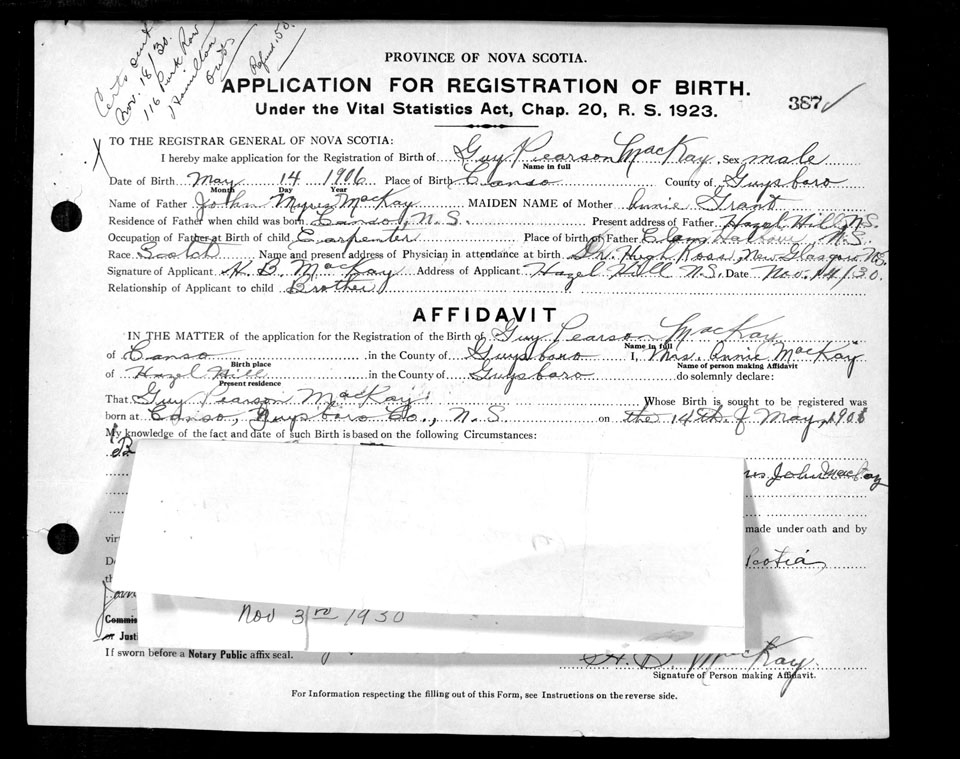 Certs sent
Nov. 18/30.
116 Park Row
Hamilton
Ont.
Refund .50
PROVINCE OF NOVA SCOTIA.
APPLICATION FOR REGISTRATION OF BIRTH.
Under the Vital Statistics Act, Chap. 20, R. S. 1923.
387 ✓
X
TO THE REGISTRAR GENERAL OF NOVA SCOTIA:
I hereby make application for the Registration of Birth of Guy Pearson MacKay, Sex male
Name in full
Date of Birth May 14 1906 Place of Birth Canso County of Guysboro
Month Day Year
Name of Father John Myres MacKay MAIDEN NAME of Mother Annie Grant
Residence of Father when child was born Canso, N.S. Present address of Father Hazel Hill, N.S.
Occupation of Father at Birth of child Carpenter Place of birth of Father N.S.
Race Scotch Name and present address of Physician in attendance at birth Dr. Hugh Ross, New Glasgow, N.S.
Signature of Applicant H. B. MacKay Address of Applicant Hazel Hill N.S. Date Nov. 14/30.
Relationship of Applicant to child Brother
AFFIDAVIT
IN THE MATTER of the application for the Registration of the Birth of Guy Pearson MacKay
Name in full
of Canso, in the County of Guysboro I, Mrs. Annie MacKay
Birth place Name of person making Affidavit
of Hazel Hill, in the County of Guysboro do solemnly declare:
Present residence
That Guy Pearson MacKay Whose Birth is sought to be registered was
born at Canso, Guysboro Co., N.S. on the 14th of May, 1906
My knowledge of the fact and date of such Birth is based on the following Circumstances:
John MacKay
made under oath and by
vir
De
Scotia
th
Nov 3rd 1930
Commis
or Justi
If sworn before a Notary Public affix seal.
H. B. MacKay.
Signature of Person making Affidavit.
For Information respecting the filling out of this Form, see Instructions on the reverse side.